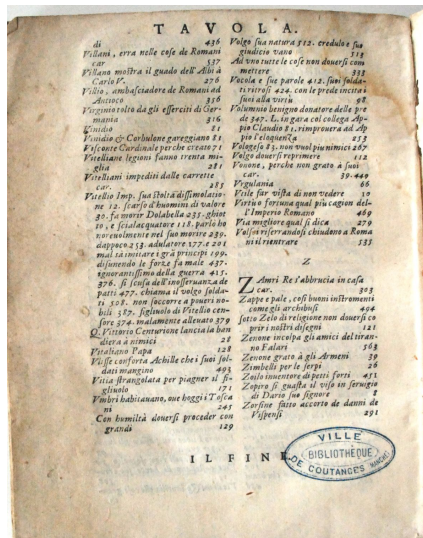 TAVOLA.
di 436
Villani, erra nelle cose de Romani
car 537
Villano mostra il guado dell'Albi à
Carlo V. 276
Villio, ambasciadore de Romani ad
Antioco 356
Virginio tolto da gli esserciti di Ger-
mania 316
Vinidio 81
Vinidio & Corbulone gareggiano 81
Visconte Cardinale perche creato 71
Vitelliane legioni fanno trenta mi-
glia 281
Vitelliani impediti dalle carrette
car. 285
Vitellio Imp. sua stolta dissimolatio-
ne 12. scarso d'huomini di valore
30. fa morir Dolabella 235. ghiot
to, e scialacquatore 118. parlo ho
noreuolmente nel suo mortre 239.
dappoco 253. adulatore 177. e 201
mal sa imitare i grã principi 199.
disunendo le forze fa male 437.
ignorantissimo della guerra 415.
376. si scusa dell'inosseruanza de
patti 477. chiama il volgo solda-
ti 308. non soccorre a poueri no-
bili 387. figliuolo di Vitello cen-
sore 374. malamente alleuato 379
Q. Vittorio Centurione lancia la ban
diera à nimici 28
Vitaliano Papa 128
Vlisse conforta Achille che i suoi sol-
dati mangino 493
Vitia strangolata per piagner il fi-
gliuolo 171
Vmbri habitauano, oue hoggi i Tosca
ni 245
Con humiltà douersi proceder con
grandi 129
Volgo sua natura 512. credulo e suo
giudicio vano 513
Ad vno tutte le cose non douersi com
mettere 333
Vocola e sue parole 412. suoi solda-
ti ritrosi 424. con le prede incita i
suoi alla virtù 98
Volumnio benigno donatore delle pre
de 347. L. in gara col collega Ap-
pio Claudio 81. rimprouera ad Ap
pio l'eloquenza 253
Vologeso 83. non vuol piu nimici 267
Volgo douersi reprimere 112
Vonone, perche non grato à suoi
car. 39. 440
Vrgulania 66
Vtile far vista di non vedere 10
Virtù o fortuna qual piu cagion del-
l'Imperio Romano 469
Via migliore qual si dica 279
Volsci riserrandosi chiudono a Roma
ni il rientrare 535
Z
ZAmri Re s'abbrucia in casa
car. 303
Zappe e pale, così buoni instromenti
come gli archibusi 494
Sotto Zelo di religione non douersi co
prir i nostri disegni 121
Zenone incolpa gli amici del tiran-
no Falari 563
Zenone grato à gli Armeni 39
Zimbelli per le serpi 26
Zoilo inuentore di petti forti 451
Zopiro si guasta il viso in seruigio
di Dario suo signore 8
Zorsine fatto accorto de danni de
Vispensi 291
IL FINE.
VILLE
BIBLIOTHÈQUE
DE COUTANCES